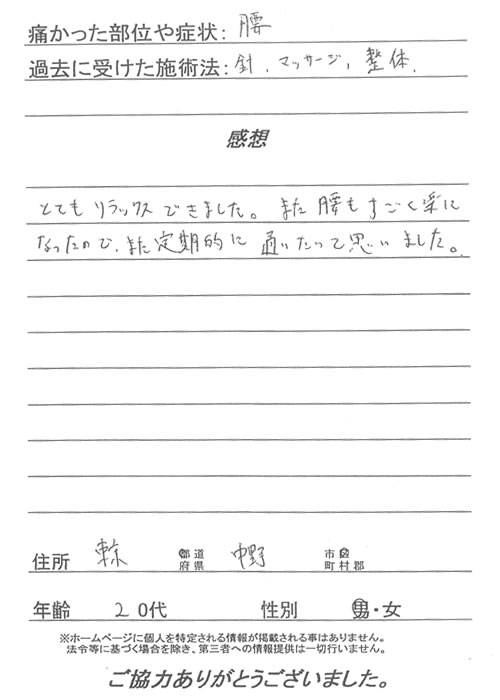 痛かった部位や症状: 腰
過去に受けた施術法: 針、マッサージ、整体.
感想
とても リラックスできました。また 腰もすごく楽に
なったので、また定期的に 通いたいって思いました。
住所 東京 都道府県 中野 市区町村郡
年齢 20代 性別 男・女
※ホームページに個人を特定される情報が掲載される事はありません。
法令等に基づく場合を除き、第三者への情報提供は一切行いません。
ご協力ありがとうございました。